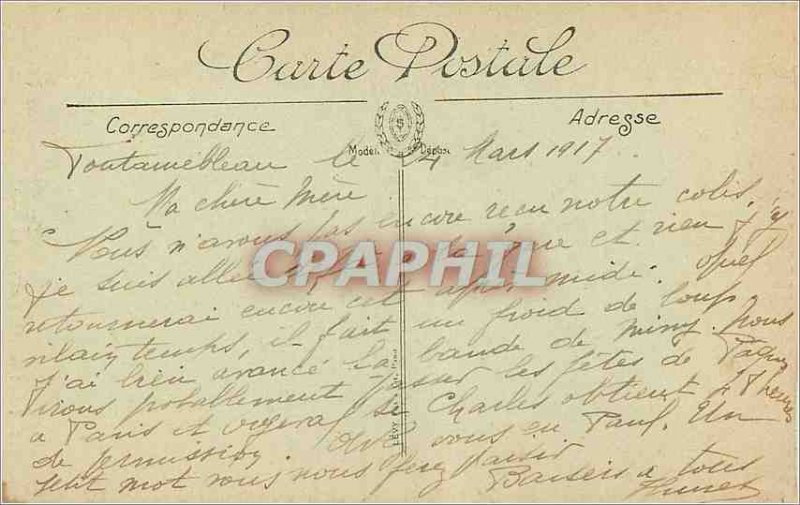 Carte Postale
Correspondance
Adresse
Modèle Déposé
Fontainebleau le 24 Mars 1917.
Ma chère Mère
Nous n'avons pas encore reçu notre colis.
je suis allée à la gare et rien j'y
retournerai encore cet après midi. Quel
vilain temps, il fait un froid de loup
J'ai bien avancé la bande de Mimy. Nous
irons probablement passer les fêtes de Pâques
à Paris et si Charles obtient 48 heures
de permission. avec vous en Un
petit mot vous nous ferez plaisir
Baisers à tous
CPAPHIL
LÉVY Paris